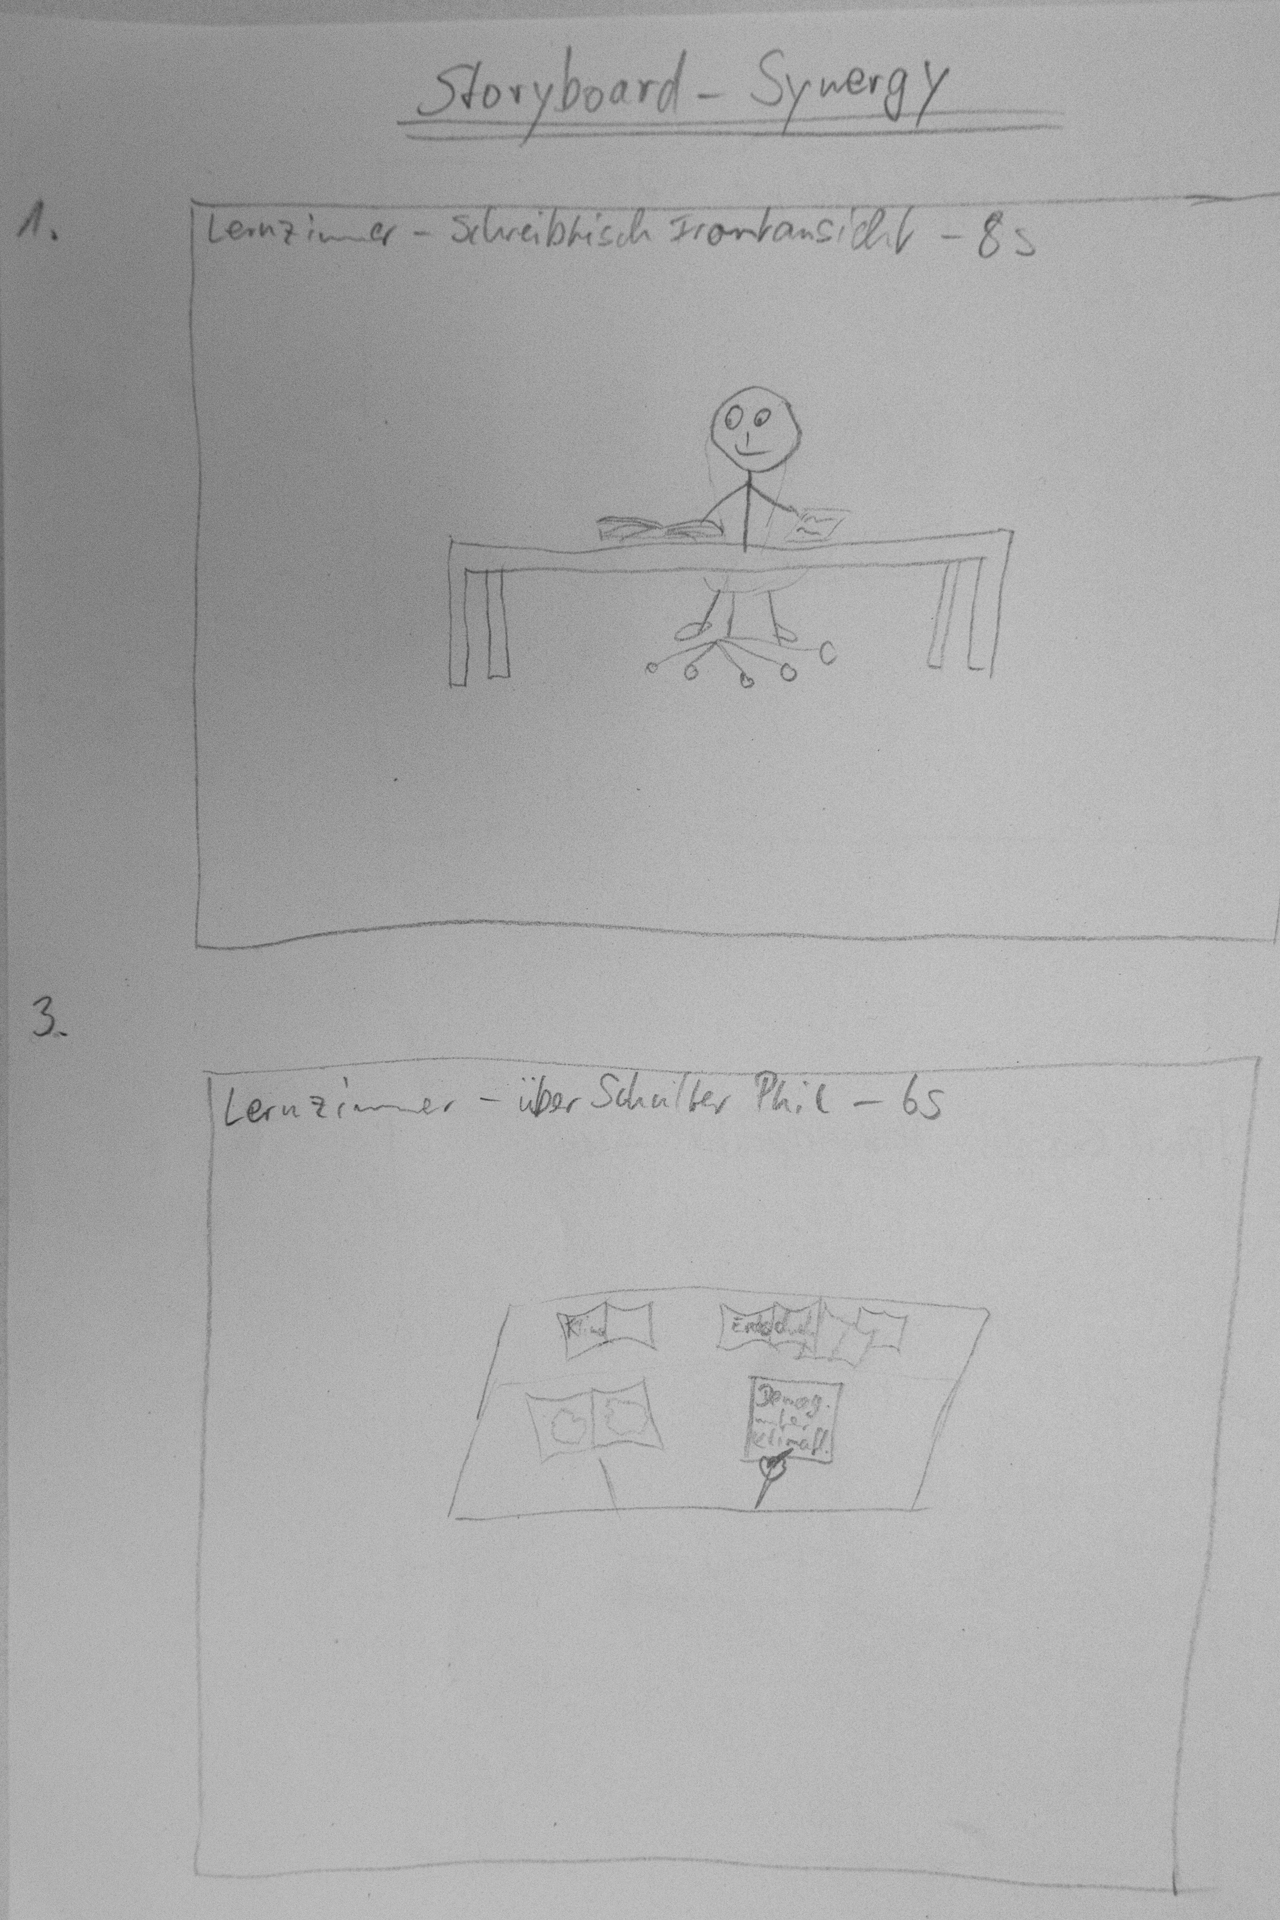 Storyboard - Synergy
1.
Lernzimmer - Schreibtisch Frontansicht - 8s
3.
Lernzimmer - über Schulter Phil - 6s
Demog.
Klimafl.